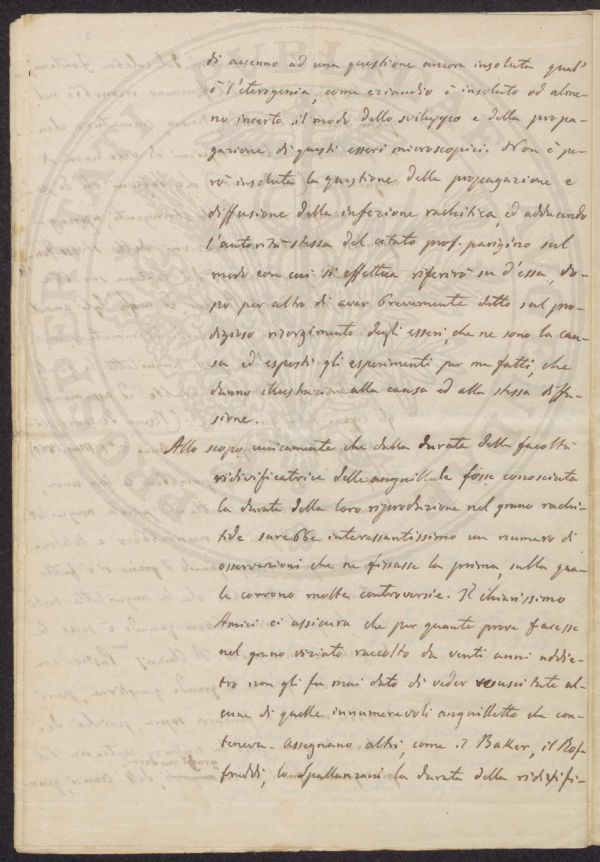 di accenno ad una questione ancora insoluta qual'
è l'eterogenia, come eziandio è insoluto od alme-
no incerto il modo dello sviluppo e della propa-
gazione di questi esseri microscopici. Non è pe-
rò insoluta la questione della propagazione e
diffusione della infezione rachitica, ed adducendo
l'autorità stessa del citato prof. parigino sul
modo con cui si effettua riferirò su d'essa, do-
po per altro di aver brevemente detto sul pro-
digioso risorgimento degli esseri, che ne sono la cau-
sa ed esposti gli esperimenti per me fatti, che
danno illustrazione alla causa ed alla stessa diffu-
sione.
Allo scopo unicamente che dalla durata della facoltà
ridivificatrice delle anguillule fosse conosciuta
la durata della loro riproduzione nel grano rachi-
tide sarebbe interessantissimo un numero di
osservazioni che ne fissasse la prima, sulla qua-
le corrono molte controversie. Il chiarissimo
Amici ci assicura che per quante prove facesse
nel grano viziato raccolto da venti anni addie-
tro non gli fu mai dato di veder resuscitate al-
cune di quelle innumerevoli anguillette che con-
teneva. Assegnano altri, come il Baker, il Rof-
fredi, lo Spallanzani la durata della ridivifi-
PROSPERITATI PUBLICAE